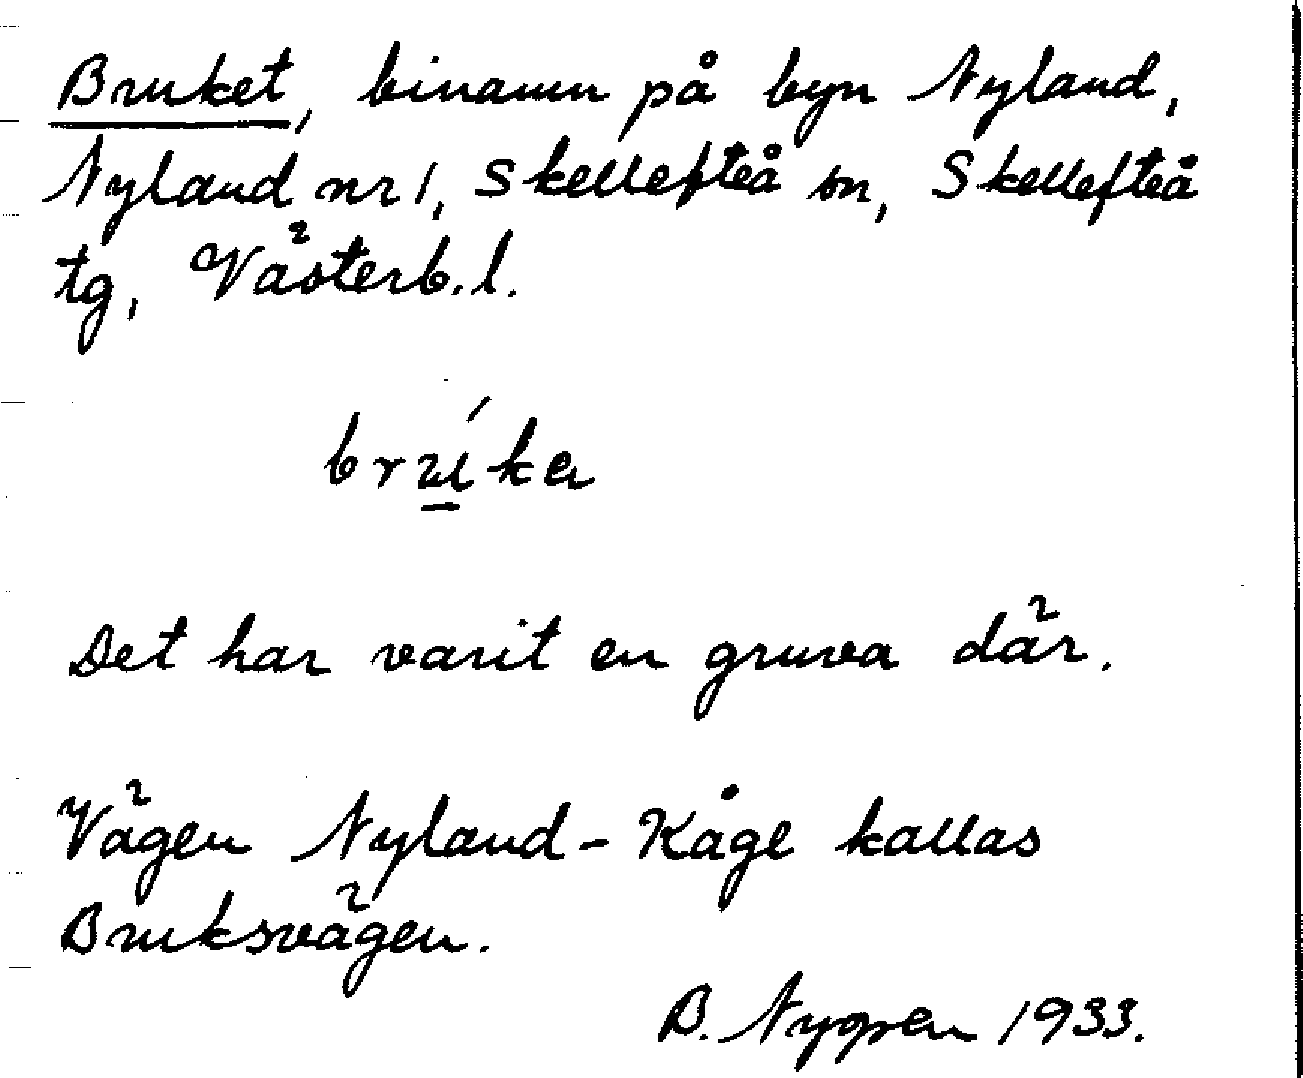 Bruket, binamn på byn Nyland,
Nyland nr 1, Skellefteå sn, Skellefteå
tg, Västerb. l.
Det har varit en gruva där.
Vägen Nyland - Kåge kallas
Bruksvägen.
B. Nygren 1933.